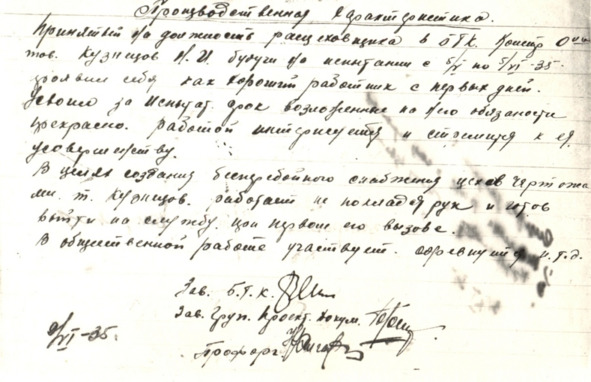 Производственная характеристика.
Принятый на должность расцеховщика в ОТК. Констр
тов. Кузнецов Н. И. будучи на испытании с 5/V по 5/VI-35.
проявил себя как хороший работник с первых дней.
Усвоил за испытат. срок возложенные на него обязаности
прекрасно. работой интересуется и стремится к её
усовершенству.
В целях создания бесперебойного снабжения цехов чертежа
ми. т. Кузнецов. работает не покладая рук и готов
выйти на службу при первом его вызове.
В общественной работе участвует. и.т.д.
Зав. Б.Т.К.
Зав. Груп. Проект. докум.
Профорг.
/VI-35.